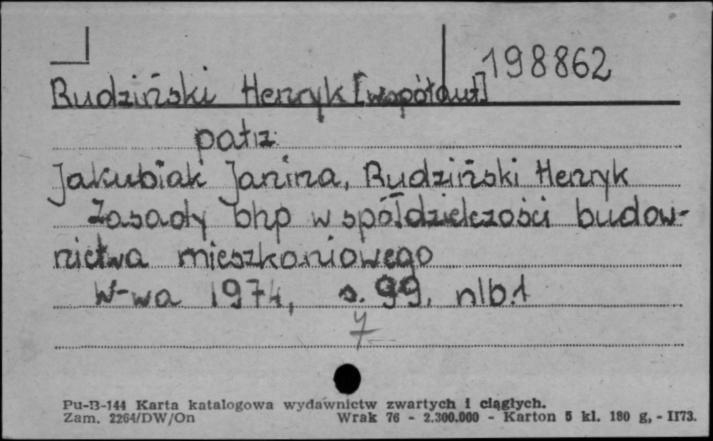 198862
Rudziński Henryk [współaut]
patrz
Jakubiak Janina, Rudziński Henryk
Zasady bhp w spółdzielczości budow-
nictwa mieszkaniowego
W-wa 1974, s. 99, nlb.1
7
Pu-B-144 Karta katalogowa wydawnictw zwartych i ciągłych.
Zam. 2264/DW/On Wrak 76 - 2.300.000 - Karton 5 kl. 180 g, - II73.